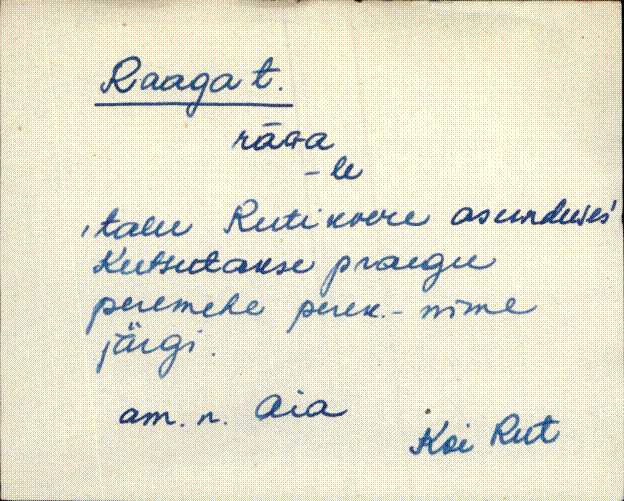 Raaga t.
rāga
-le
'talu Rutikvere asunduses'
Kutsutakse praegu
peremehe perek.- nime
järgi.
am. n. Aia
Koi Rut